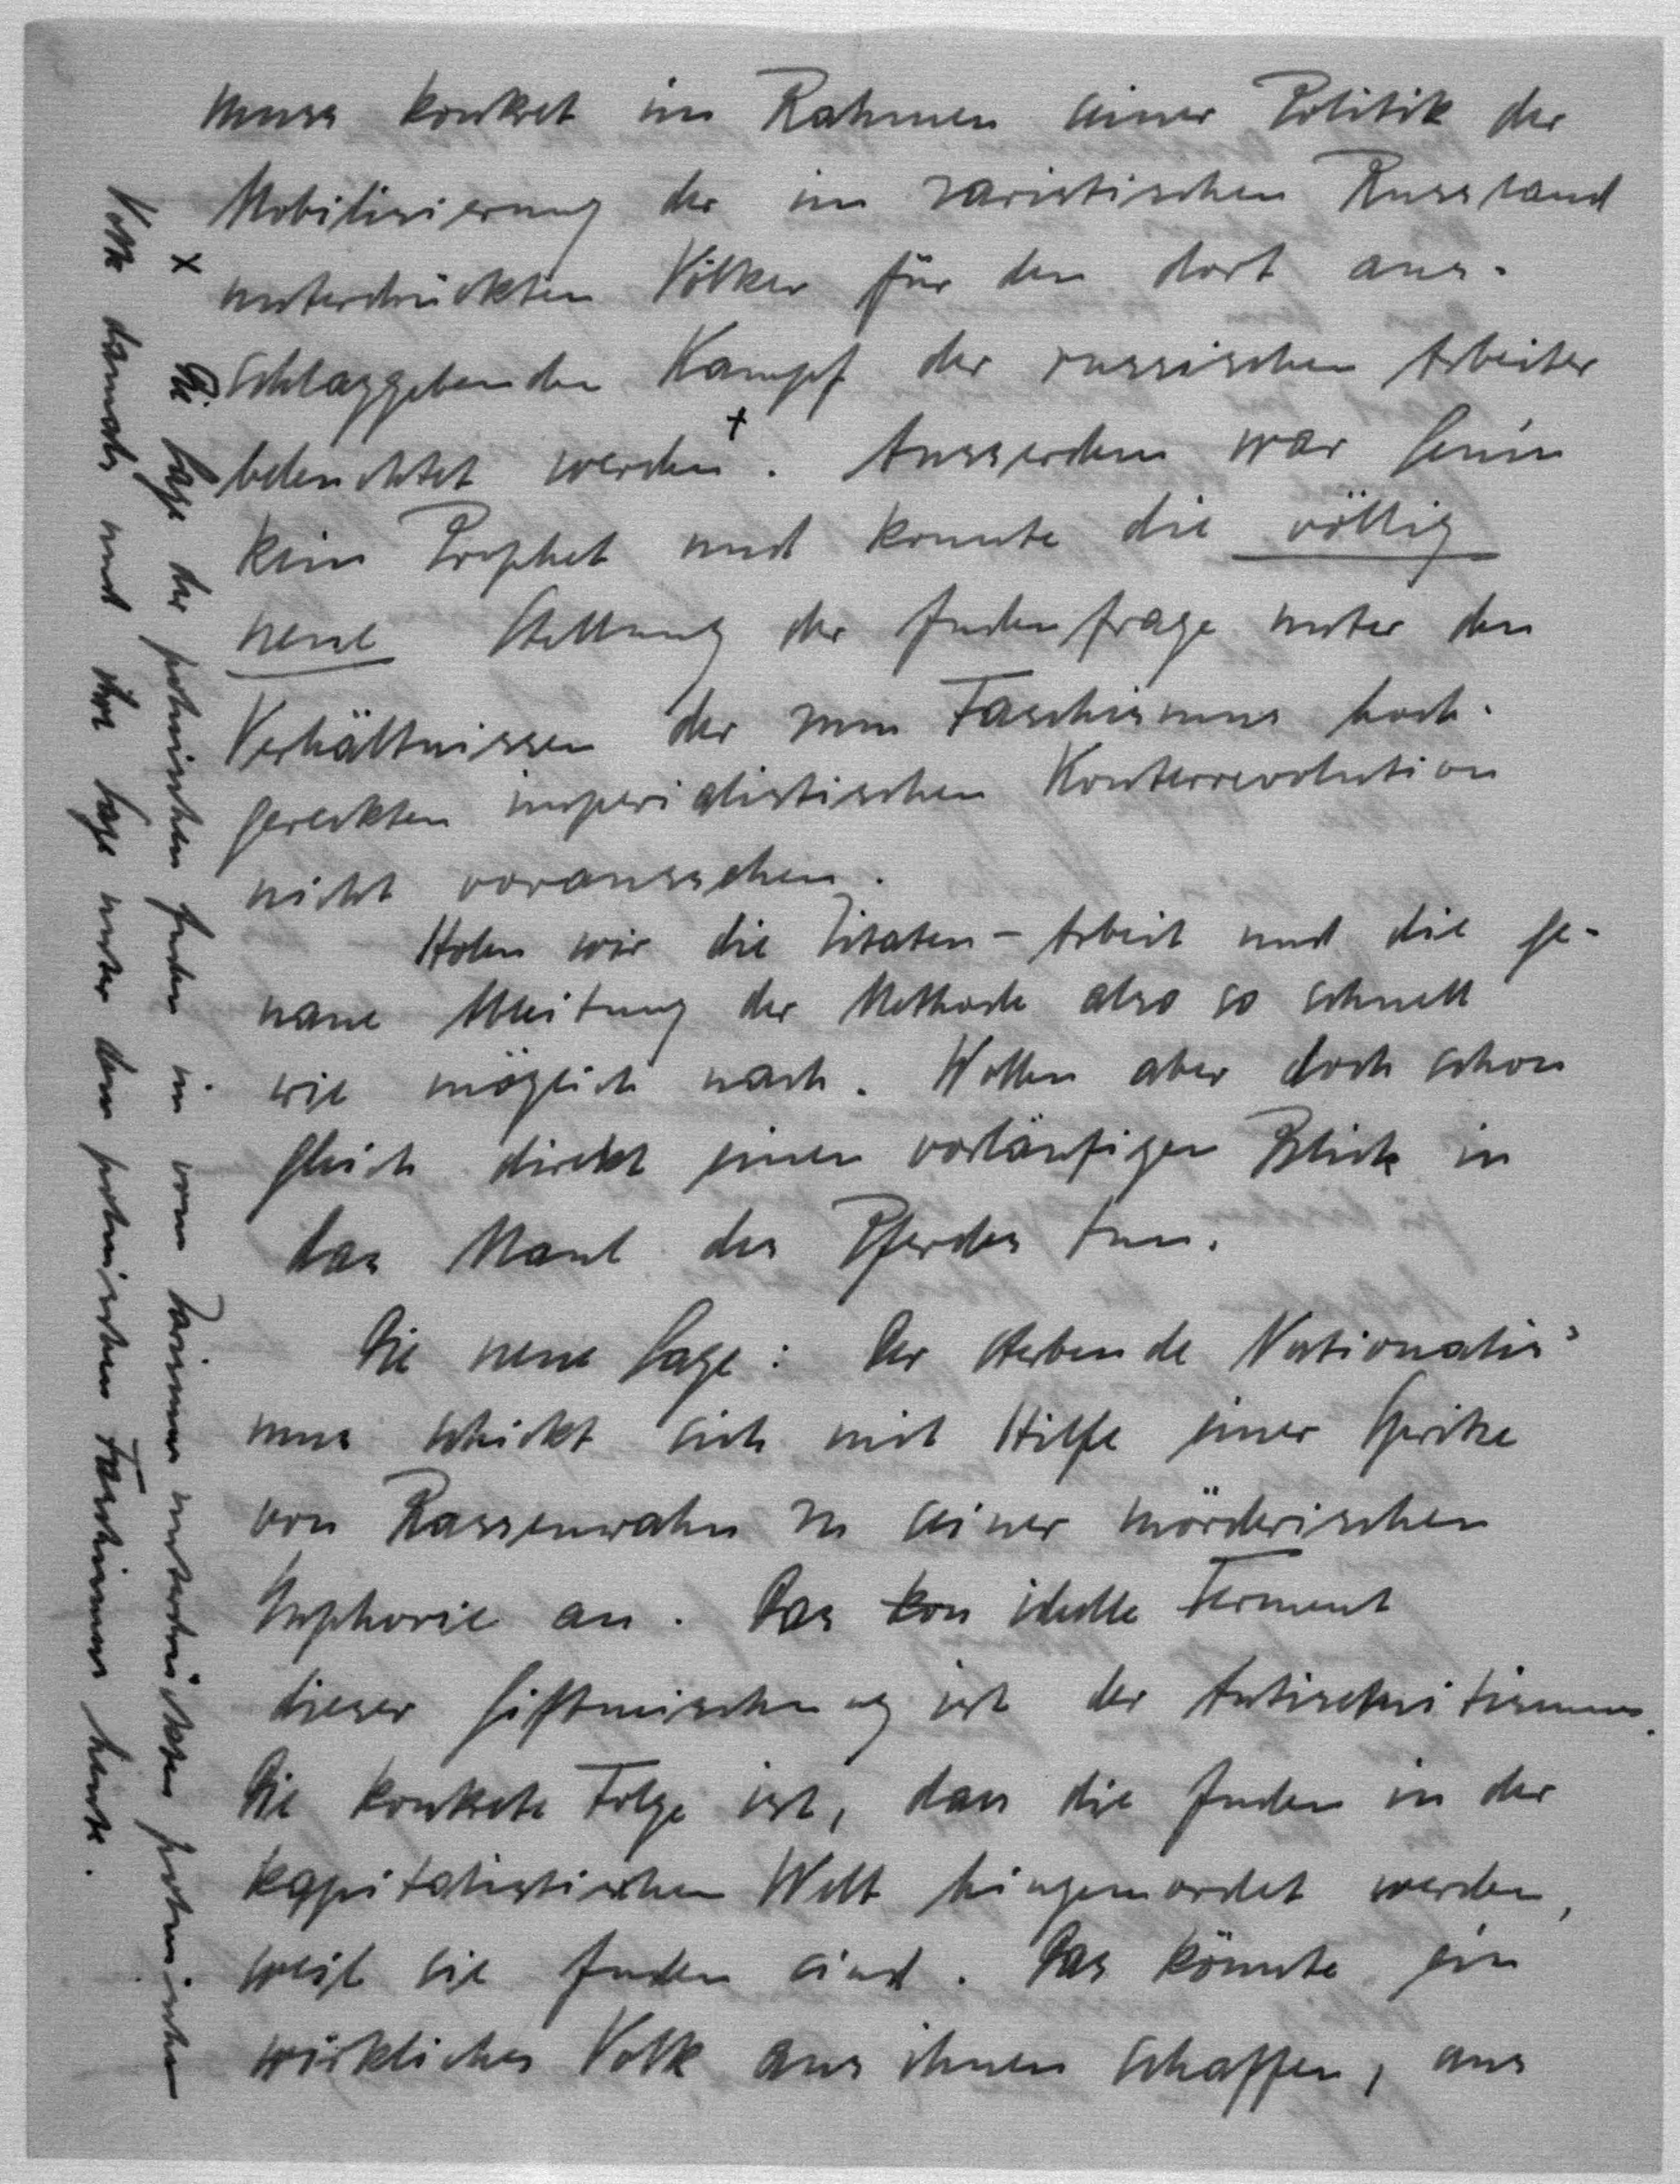 muss konkret im Rahmen seiner Politik der
Mobilisierung der im zaristischen Russland
unterdrückten Völker für den dort aus-
schlaggebenden Kampf der russischen Arbeiter
beleuchtet werden x. Ausserdem war Lenin
kein Prophet und konnte die völlig
neue Stellung der Judenfrage unter den
Verhältnissen der zum Faschismus hoch-
gereckten imperialistischen Konterrevolution
nicht voraussehen.
Holen wir die Zitaten-Arbeit und die ge-
naue Ableitung der Methode also so schnell
wie möglich nach. Wollen aber doch schon
gleich direkt einen vorläufigen Blick in
das Maul des Pferdes tun.
Die neue Lage: Der sterbende Nationalis-
mus schickt sich mit Hilfe einer Spritze
von Rassenwahn zu seiner mörderischen
Euphorie an. Das kon ideelle Ferment
dieser Giftmischung ist der Antisemitismus.
Die konkrete Folge ist, dass die Juden in der
kapitalistischen Welt hingemordet werden,
weil sie Juden sind. Das könnte ein
wirkliches Volk aus ihnen schaffen, aus
x Die Lage der polnischen Juden im vom Zarismus unterdrückten polnischen
Volk damals und ihre Lage unter dem polnischen Faschismus heute.